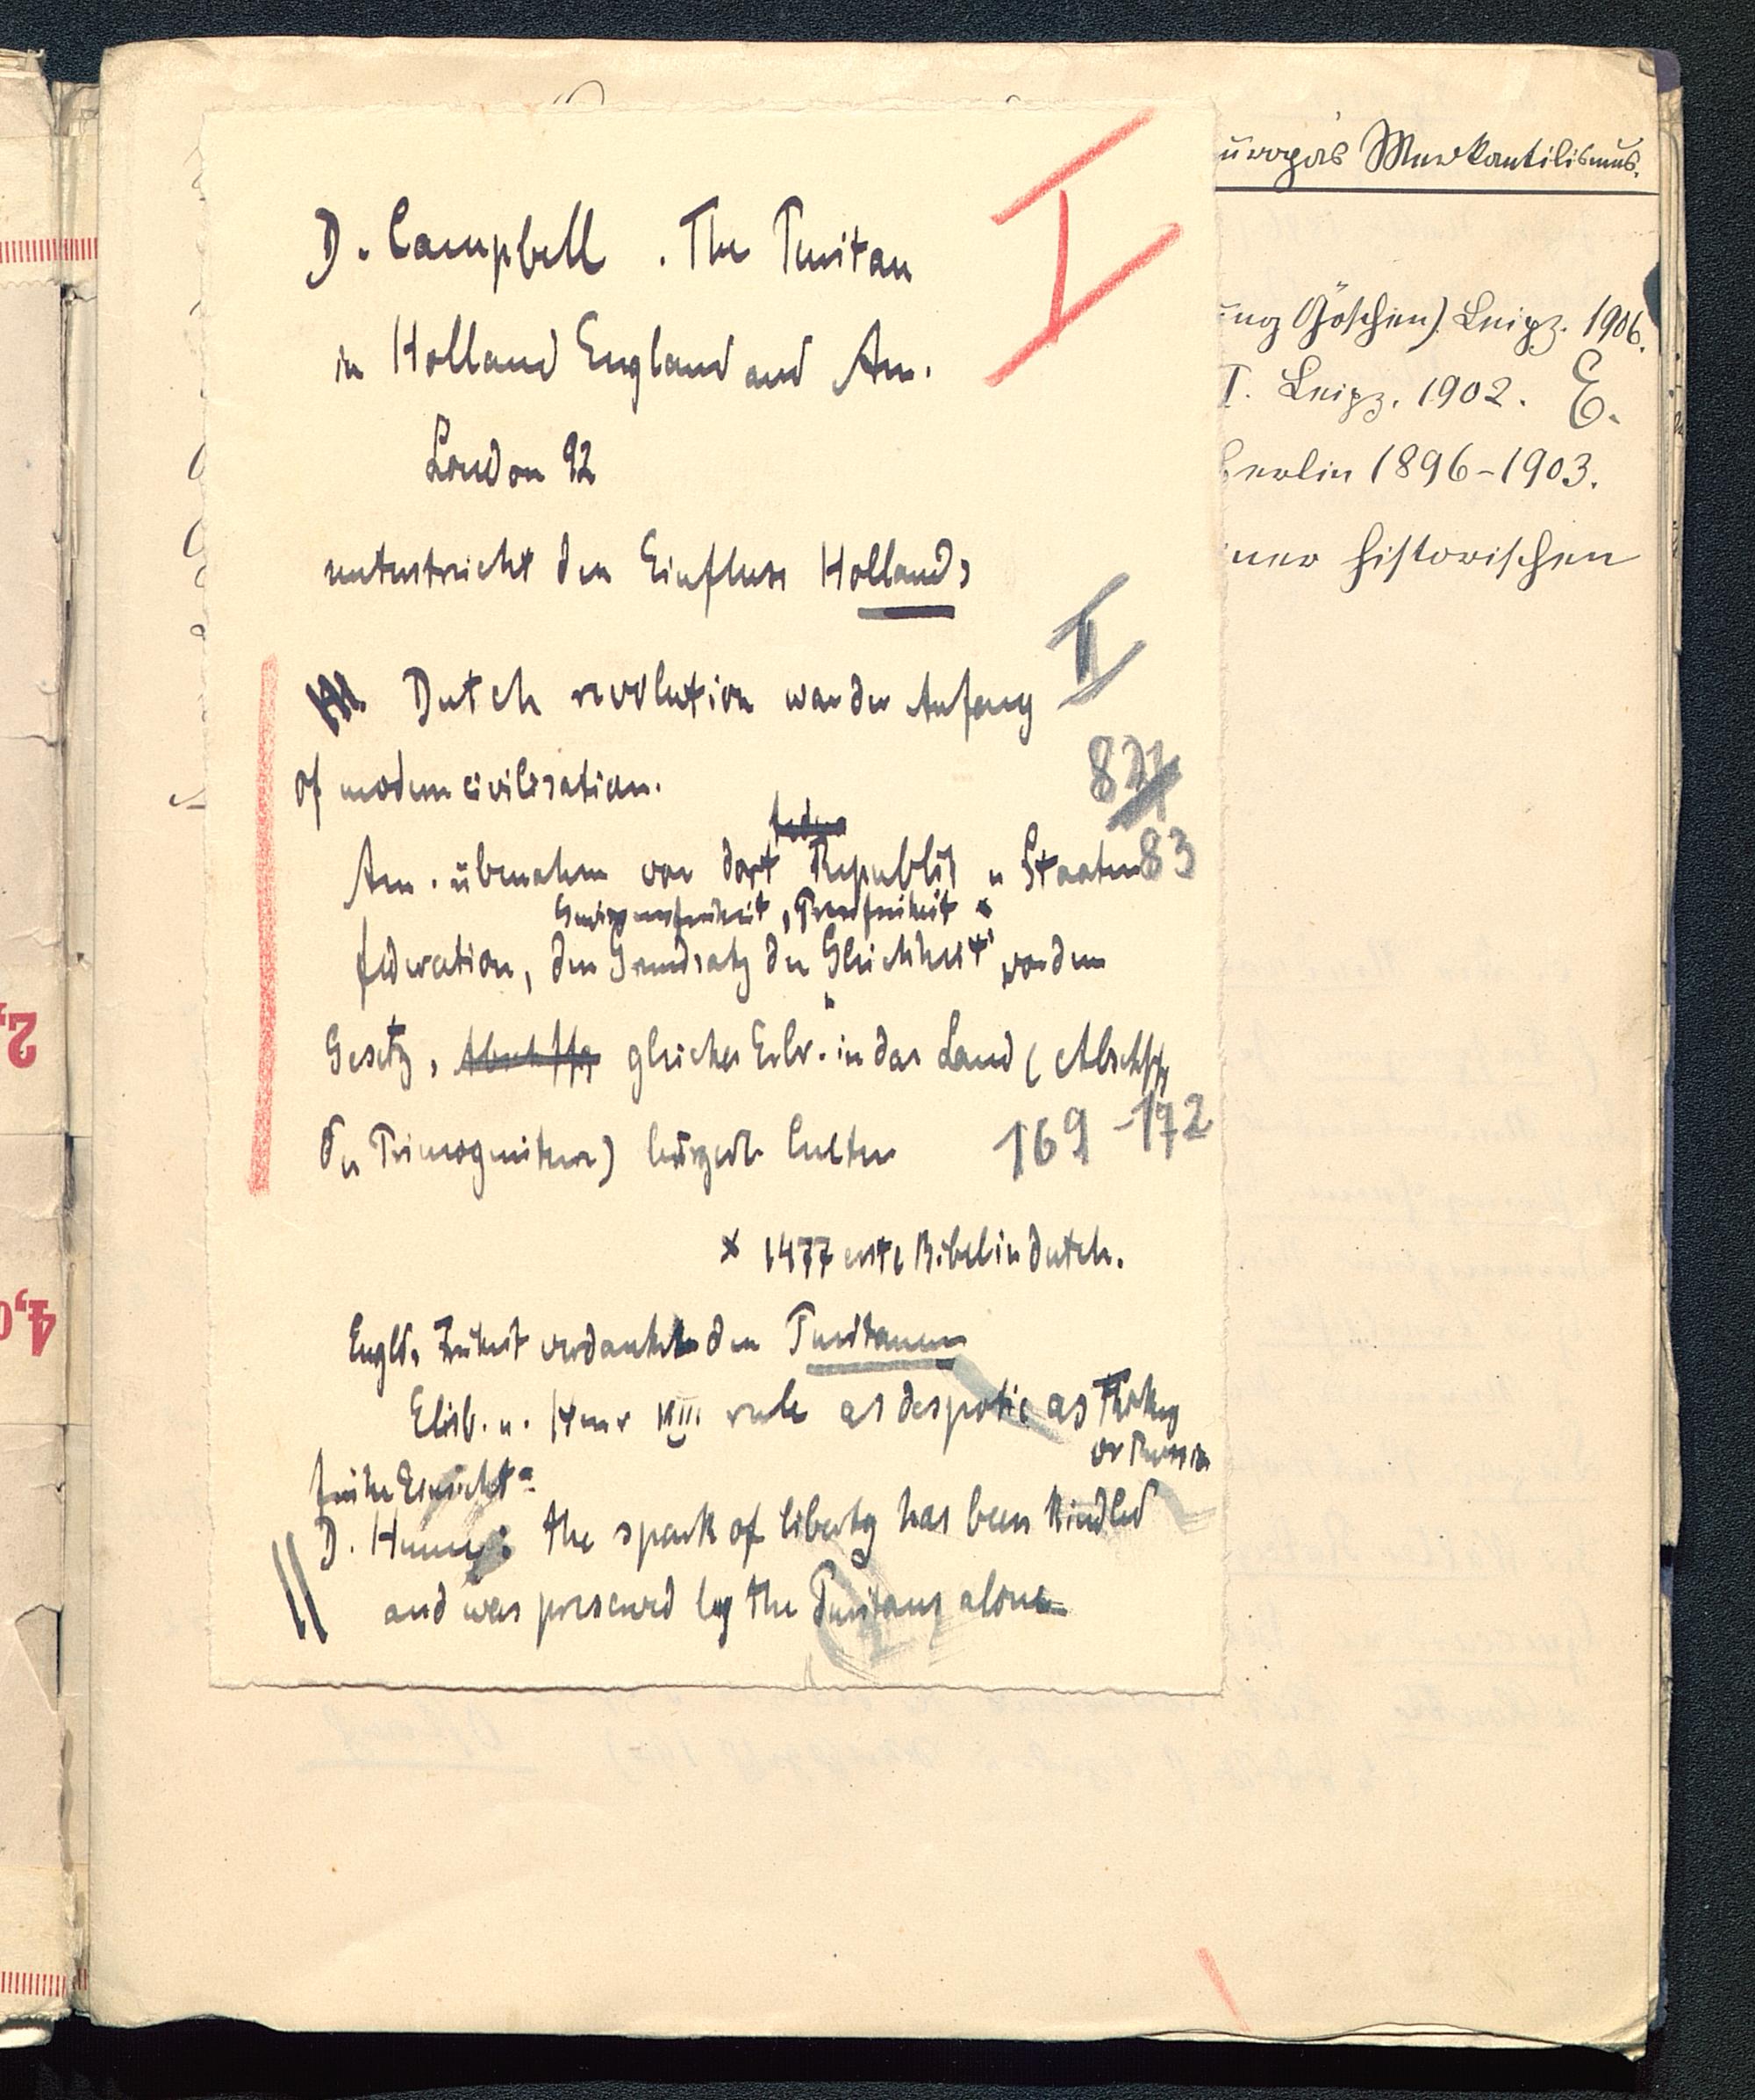 D. Campbell. The Puritan
in Holland England and Am.
London 92
unterstreicht den Einfluss Hollands
I
II
Dutch revolution war der Anfang
of modern civilisation.
83
Am. übernahm von dort Republik u Staaten
Gewissensfreiheit, Pressfreiheit x
federation, den Grundsatz der „Gleichheit" vor dem
Gesetz, gleiches Erbr. in das Land (Abschffg
der Primogenitur)
169-172
x 1477 erste Bibel in dutch.
Engld. Freiheit verdankt den Puritanern
Elisb. u. Henr VIII. rule as despotic as Turkey
or Russia
D. Hume: the spark of liberty has been kindled
and was preserved by the Puritans alone
uropas Merkantilismus.
ung Göschen). Leipz. 1906.
I. Leipz. 1902. E.
Berlin 1896-1903.
iner historischen
2,
4,0